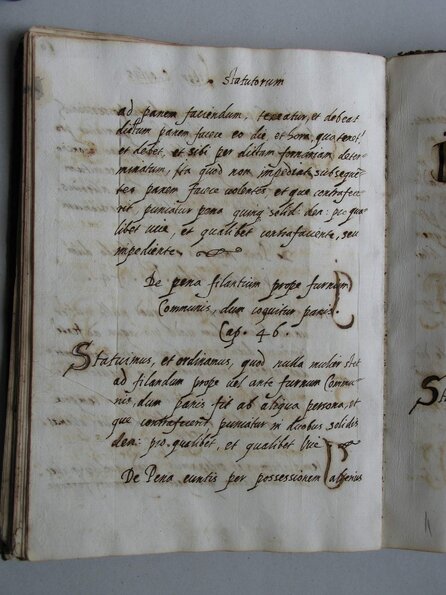 Statutorum
ad panem faciendum, teneatur, et debeat
dictum panem facere eo die, et hora, qua tenet.
et debet, et sibi per dictam fornariam deter=
minatum, ita quod non impediat subsequē
ter panem facere volentes, et que contrafece=
rit, puniatur pena quinq solid: den: pro qua
libet vice, et qualibet contrafaciente, seu
impediente
De pena filantium prope furnum
Communis, dum coquitur panis.
Cap. 46.
Statuimus, et ordinamus, quod nulla mulier stet
ad filandum prope vel ante furnum Commu=
nis, dum panis fit ab aliqua persona, et
que contrafecerit, puniatur in duobus solidis
den: pro qualibet, et qualibet vice
De Pena euntis per possessionem alterius